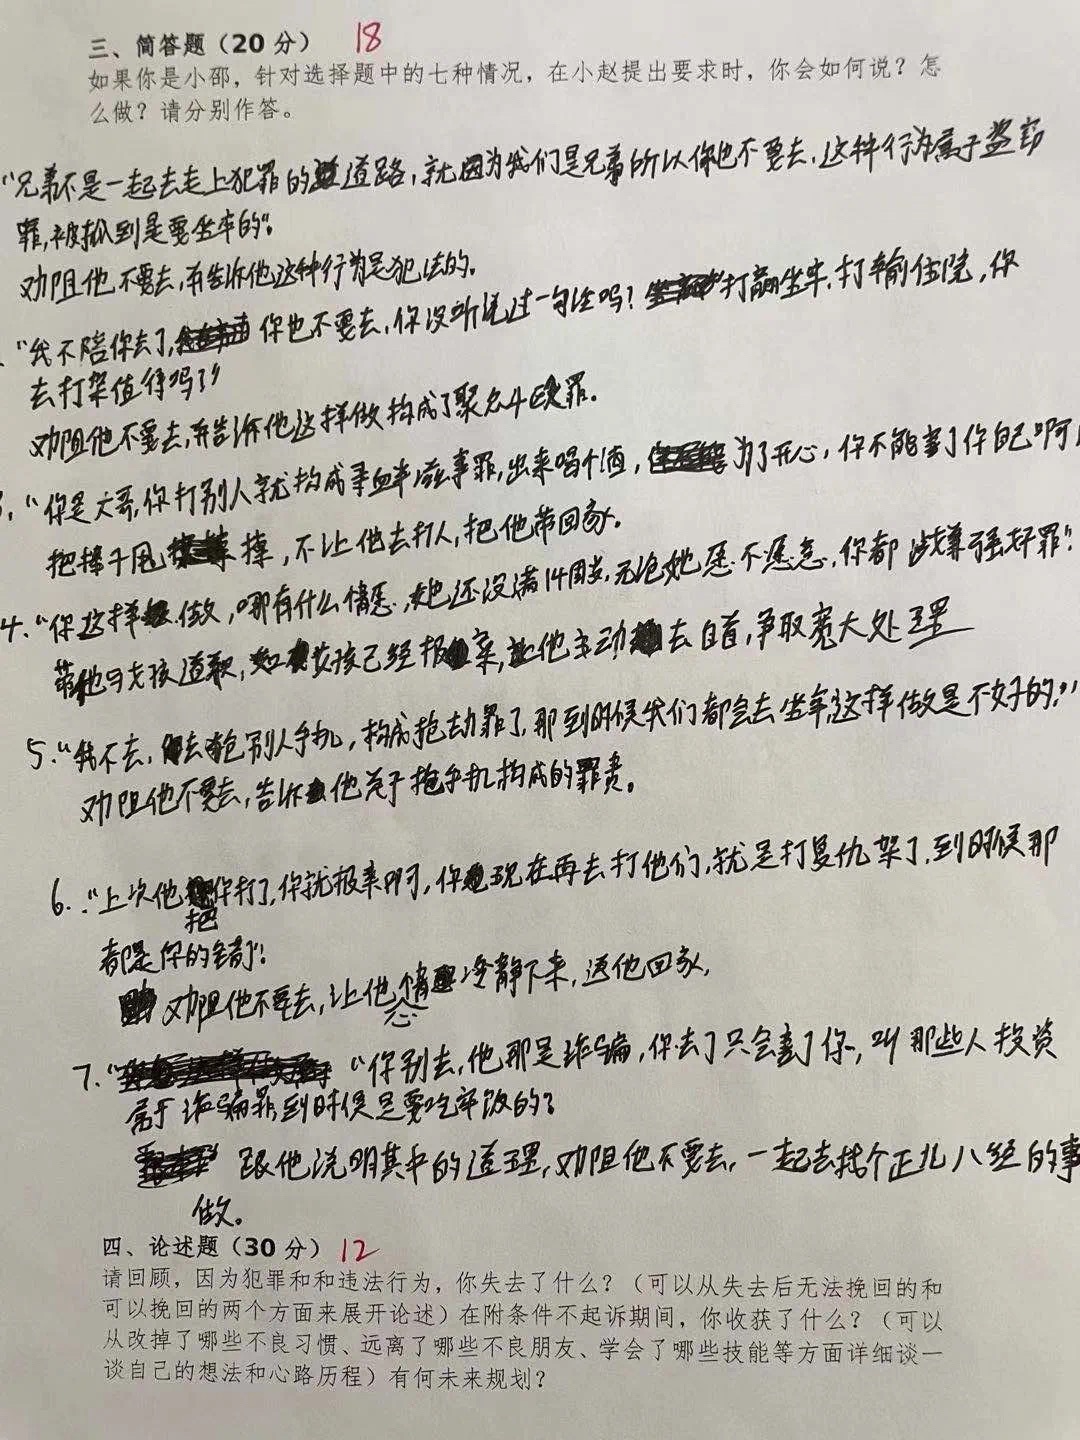 三、简答题（20 分） 18
如果你是小邵，针对选择题中的七种情况，在小赵提出要求时，你会如何说？怎
么做？请分别作答。
“兄弟不是一起去走上犯罪的道路，就因为我们是兄弟所以你也不要去，这种行为属于盗窃
罪，被抓到是要坐牢的”。
劝阻他不要去，并告诉他这种行为是犯法的。
“我不陪你去了，你也不要去，你没听说过一句话吗？打赢坐牢，打输住院，你
去打架值得吗？”
劝阻他不要去，并告诉他这样做构成了聚众斗殴罪。
3、“你是大哥，你打别人就构成寻衅滋事罪，出来喝个酒，为了开心，你不能害了你自己啊
把棒子甩掉，不让他去打人，把他带回家。
4、“你这样做，哪有什么情愿，她还没满14周岁，无论她愿不愿意，你都涉嫌强奸罪”。
带他与女孩道歉，如女孩已经报案，让他主动去自首，争取宽大处理
5、“我不去，你去抢别人手机，构成抢劫罪了，那到时候我们都会去坐牢，这样做是不好的。”
劝阻他不要去，告诉他关于抢手机构成的罪责。
6、“上次他把你打了，你就报案啊，你现在再去打他们，就是打复仇架了，到时候那
都是你的错”。
劝阻他不要去，让他情绪冷静下来，送他回家，
7、“你别去，他那是诈骗，你去了只会害了你，叫那些人投资
属于诈骗罪，到时候是要吃牢饭的？
跟他说明其中的道理，劝阻他不要去，一起去找个正儿八经的事
做。
四、论述题（30 分） 12
请回顾，因为犯罪和和违法行为，你失去了什么？（可以从失去后无法挽回的和
可以挽回的两个方面来展开论述）在附条件不起诉期间，你收获了什么？（可以
从改掉了哪些不良习惯、远离了哪些不良朋友、学会了哪些技能等方面详细谈一
谈自己的想法和心路历程）有何未来规划？